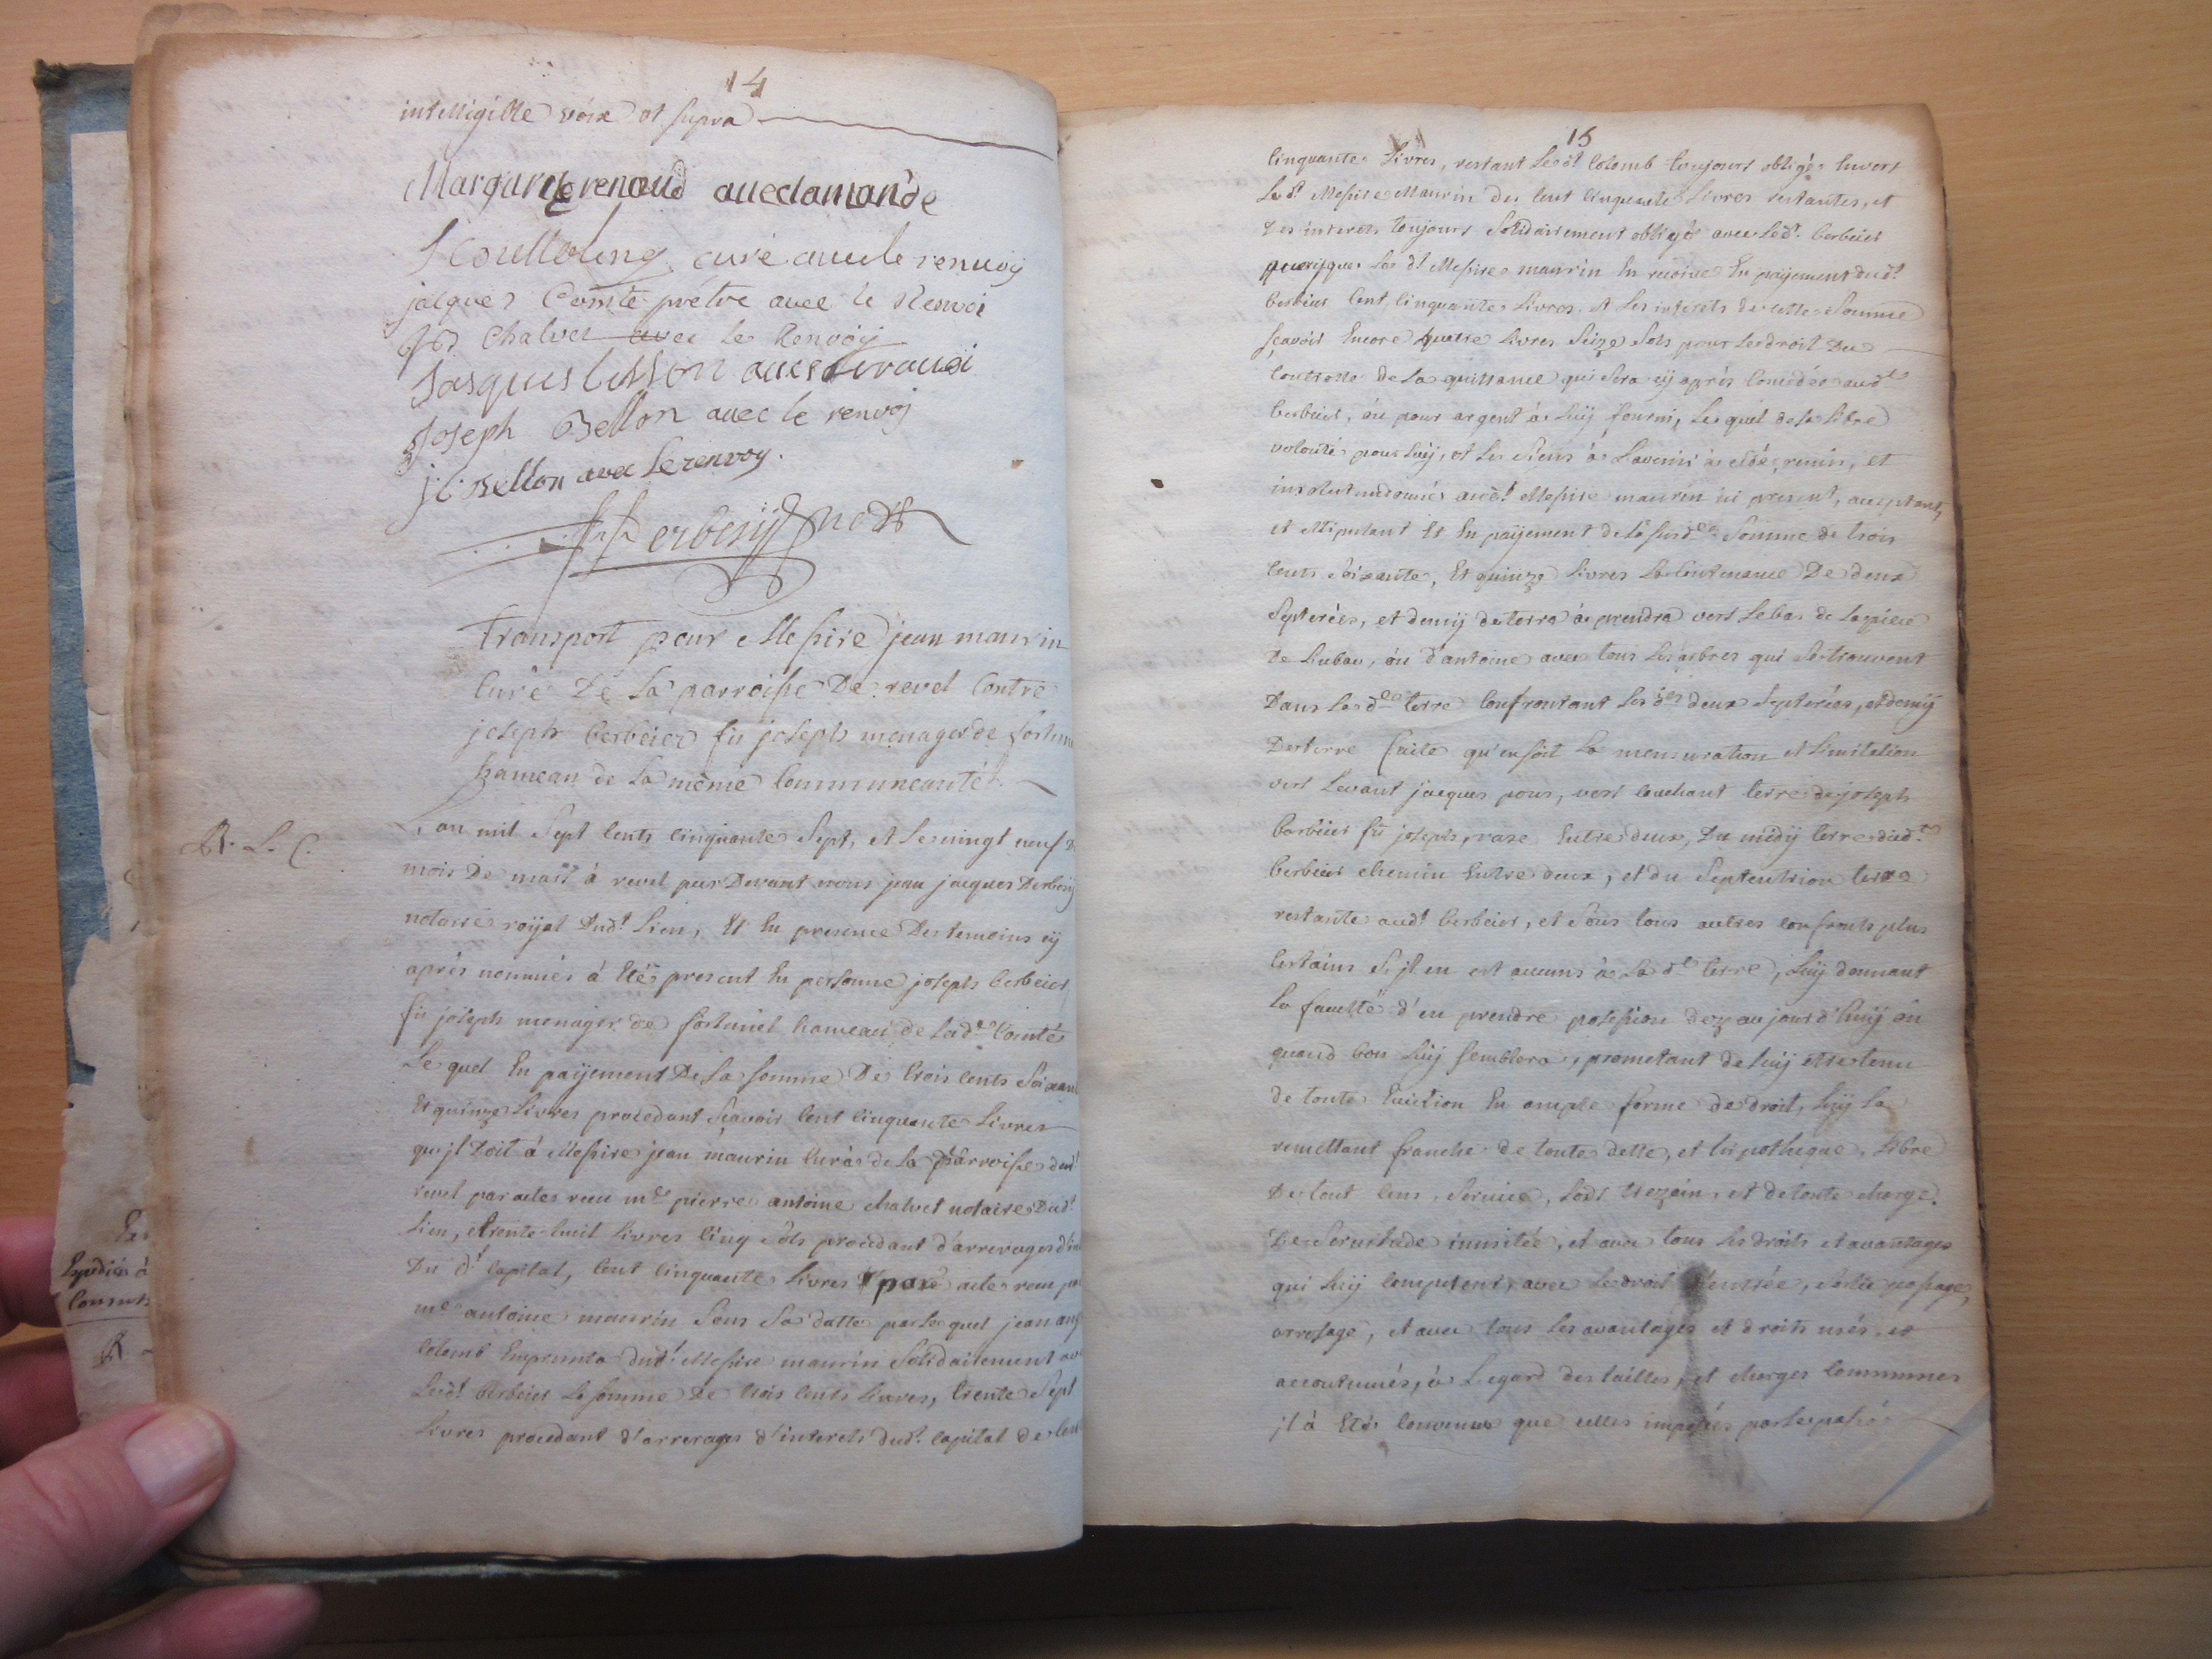 14
intelligible voix et supra
Margurite renaud avec lamande
curé avec le renvoy
jacques Comte prêtre avec le Renvoi
Chalvet avec le Renvoy
Jasques
Joseph Bellon avec le renvoj
j. Bellon avec le renvoy.
Derbesy not
Transport pour Messire jean maurin
Curé De La parroisse De revel Contre
joseph berbeier fu joseph menager de fortun
hameau de La même Communeauté
R. L. C.
L'an mil Sept Cents Cinquante Sept, et Le vingt neuf D
mois De mars à revel par Devant nous jean jacques Derbesy
notaire roÿal Dudt Lieu, Et En presence Des temoins cÿ
après nommés à Eté present En personne joseph berbeier
fu joseph menager de fortuniet hameau de Ladte Comté
Le quel En paÿement De La somme De trois Cents Soixan
Et quinze Livres procedant Sçavoir Cent Cinquante Livres
qu'jl Doit à Messire jean maurin Curé de La Parroisse dudt
revel par acte receu me pierre antoine chalvet notaire Dudt
Lieu, trente-huit Livres Cinq Sols procedant d'arrerages d'in
Du dt Capital, Cent Cinquante Livres par acte receu pa
me antoine maurin Sous Sa datte par Le quel jean
Colomb Emprunta dudt Messire maurin Solidairement av
Ledt berbeier La somme De trois Cents Livres, trente Sept
Livres procedant d'arrerages d'interets dudt Capital de Cent
15
Cinquante Livres, restant Ledt Colomb toujours obligé Envers
Ledt Messire Maurin des Cent Cinquante Livres restantes, et
Des interets toujours Solidairement obligé avec Ledt berbeier
puisque Le dt Messire maurin En reçoive En paÿement dudt
berbeier Cent Cinquante Livres et Les interets de cette Somme
sçavoir Encore quatre Livres Seize Sols pour Le droit Du
Controlle de La quittance qui Sera cÿ après Concedée audt
berbeier, óu pour argent à Luÿ fourni, Le quel de Sa Libre
volonté pour Luÿ, et Les Siens à L'avenir à cédé, remis, et
insolutumdonné audt Messire maurin ici present, acceptant,
et stipulant Et En paÿement de La susdte Somme de trois
Cents Soixante, Et quinze Livres La Contenance De deux
Septerées, et demÿ de terre à prendre vers Le bas de La piece
De Lubac, óu d'antoine avec tous Les arbres qui Se trouvent
Dans Ladte terre Confrontant Les dtes deux Septerées, et demÿ
De terre faite qu'en soit La mensuration et Limitation
vers Levant jacques pous, vers Couchant terre de joseph
berbeier fu joseph, rase Entre deux, Du midÿ terre dudt
berbeier chemin Entre deux, et du Septentrion terre
restante audt berbeier, et Sous tous autres Confronts plus
Certains S'jl en est aucuns à Ladte terre, Luÿ donnant
La faculté d'en prendre possession dez aujourd'huÿ óu
quand bon Luÿ Semblera, prometant de Luÿ etre tenu
de toute Eviction En ample forme de droit, Luÿ La
remettant franche de toute dette, et hipotheque, Libre
De tout Cens, Service, Lods trezain, et de toute charge.
De Servitude inusitée, et avec tous Les droits et avantages
qui Luÿ Competent, avec Le droit d'entrée, Sortie passage,
arrosage, et avec tous Les avantages et droits usés, et
accoutumés, à L'egard des tailles, et charges Communes
jl à Eté Convenu que celles imposées par Le passé